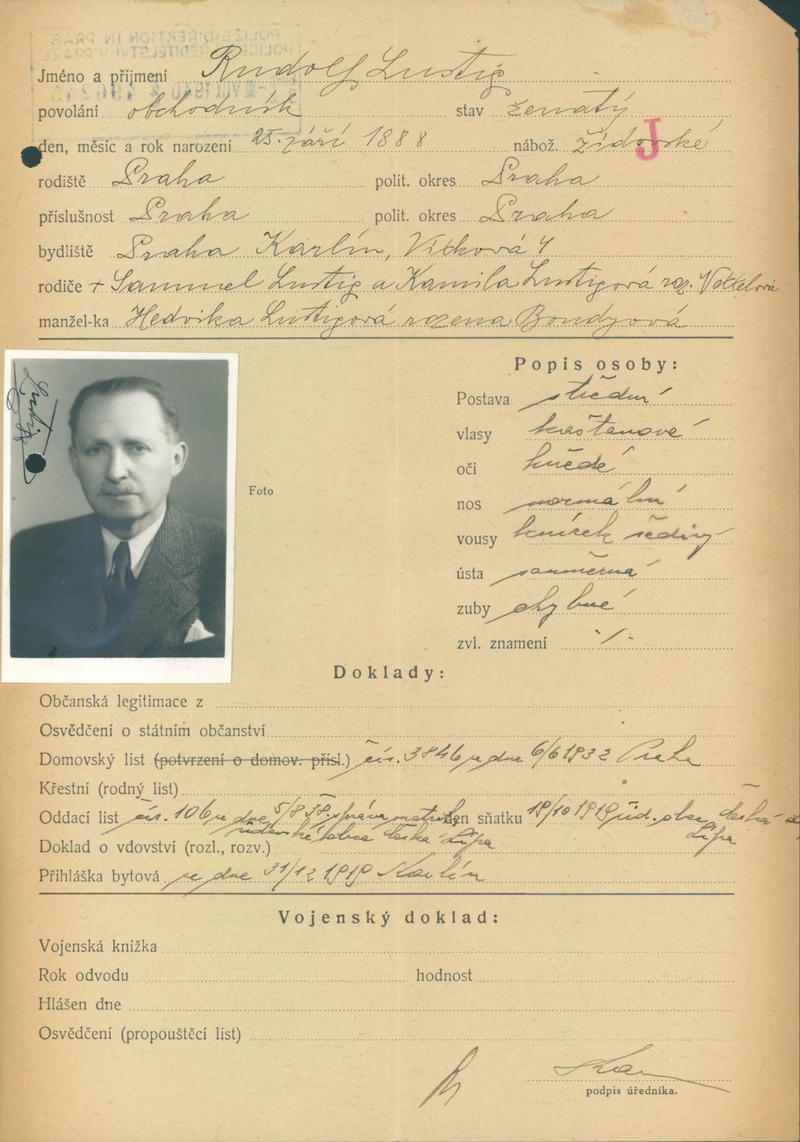 POLIZEIDIREKTION IN PRAG
POLICEJNÍ ŘEDITELSTVÍ V PRAZE
Jméno a příjmení Rudolf Lustig
povolání obchodník stav ženatý
den, měsíc a rok narození 25. září 1888 nábož. židovské
J
rodiště Praha polit. okres Praha
příslušnost Praha polit. okres Praha
bydliště Praha Karlín, Vítková 4
rodiče + Samuel Lustig a Kamila Lustigová roz.
manžel-ka Hedvika Lustigová rozena Bondyová
Popis osoby:
Postava střední
vlasy kaštanové
oči hnědé
Foto
nos normální
vousy knírek šedivý
ústa souměrná
zuby chybné
zvl. znamení /
Doklady:
Občanská legitimace z
Osvědčení o státním občanství
Domovský list (potvrzení o domov. přísl.) čís. 3846 ze dne 6/6 1932 Praha
Křestní (rodný list)
Oddací list čís. 106 ze dne 5/8 38 správa matrik den sňatku 19/10 1919 úd. obec česká
židovské obce česká Lípa Lípa
Doklad o vdovství (rozl., rozv.)
Přihláška bytová ze dne 31/12 1919 Karlín
Vojenský doklad:
Vojenská knížka
Rok odvodu hodnost
Hlášen dne
Osvědčení (propouštěcí list)
podpis úředníka.